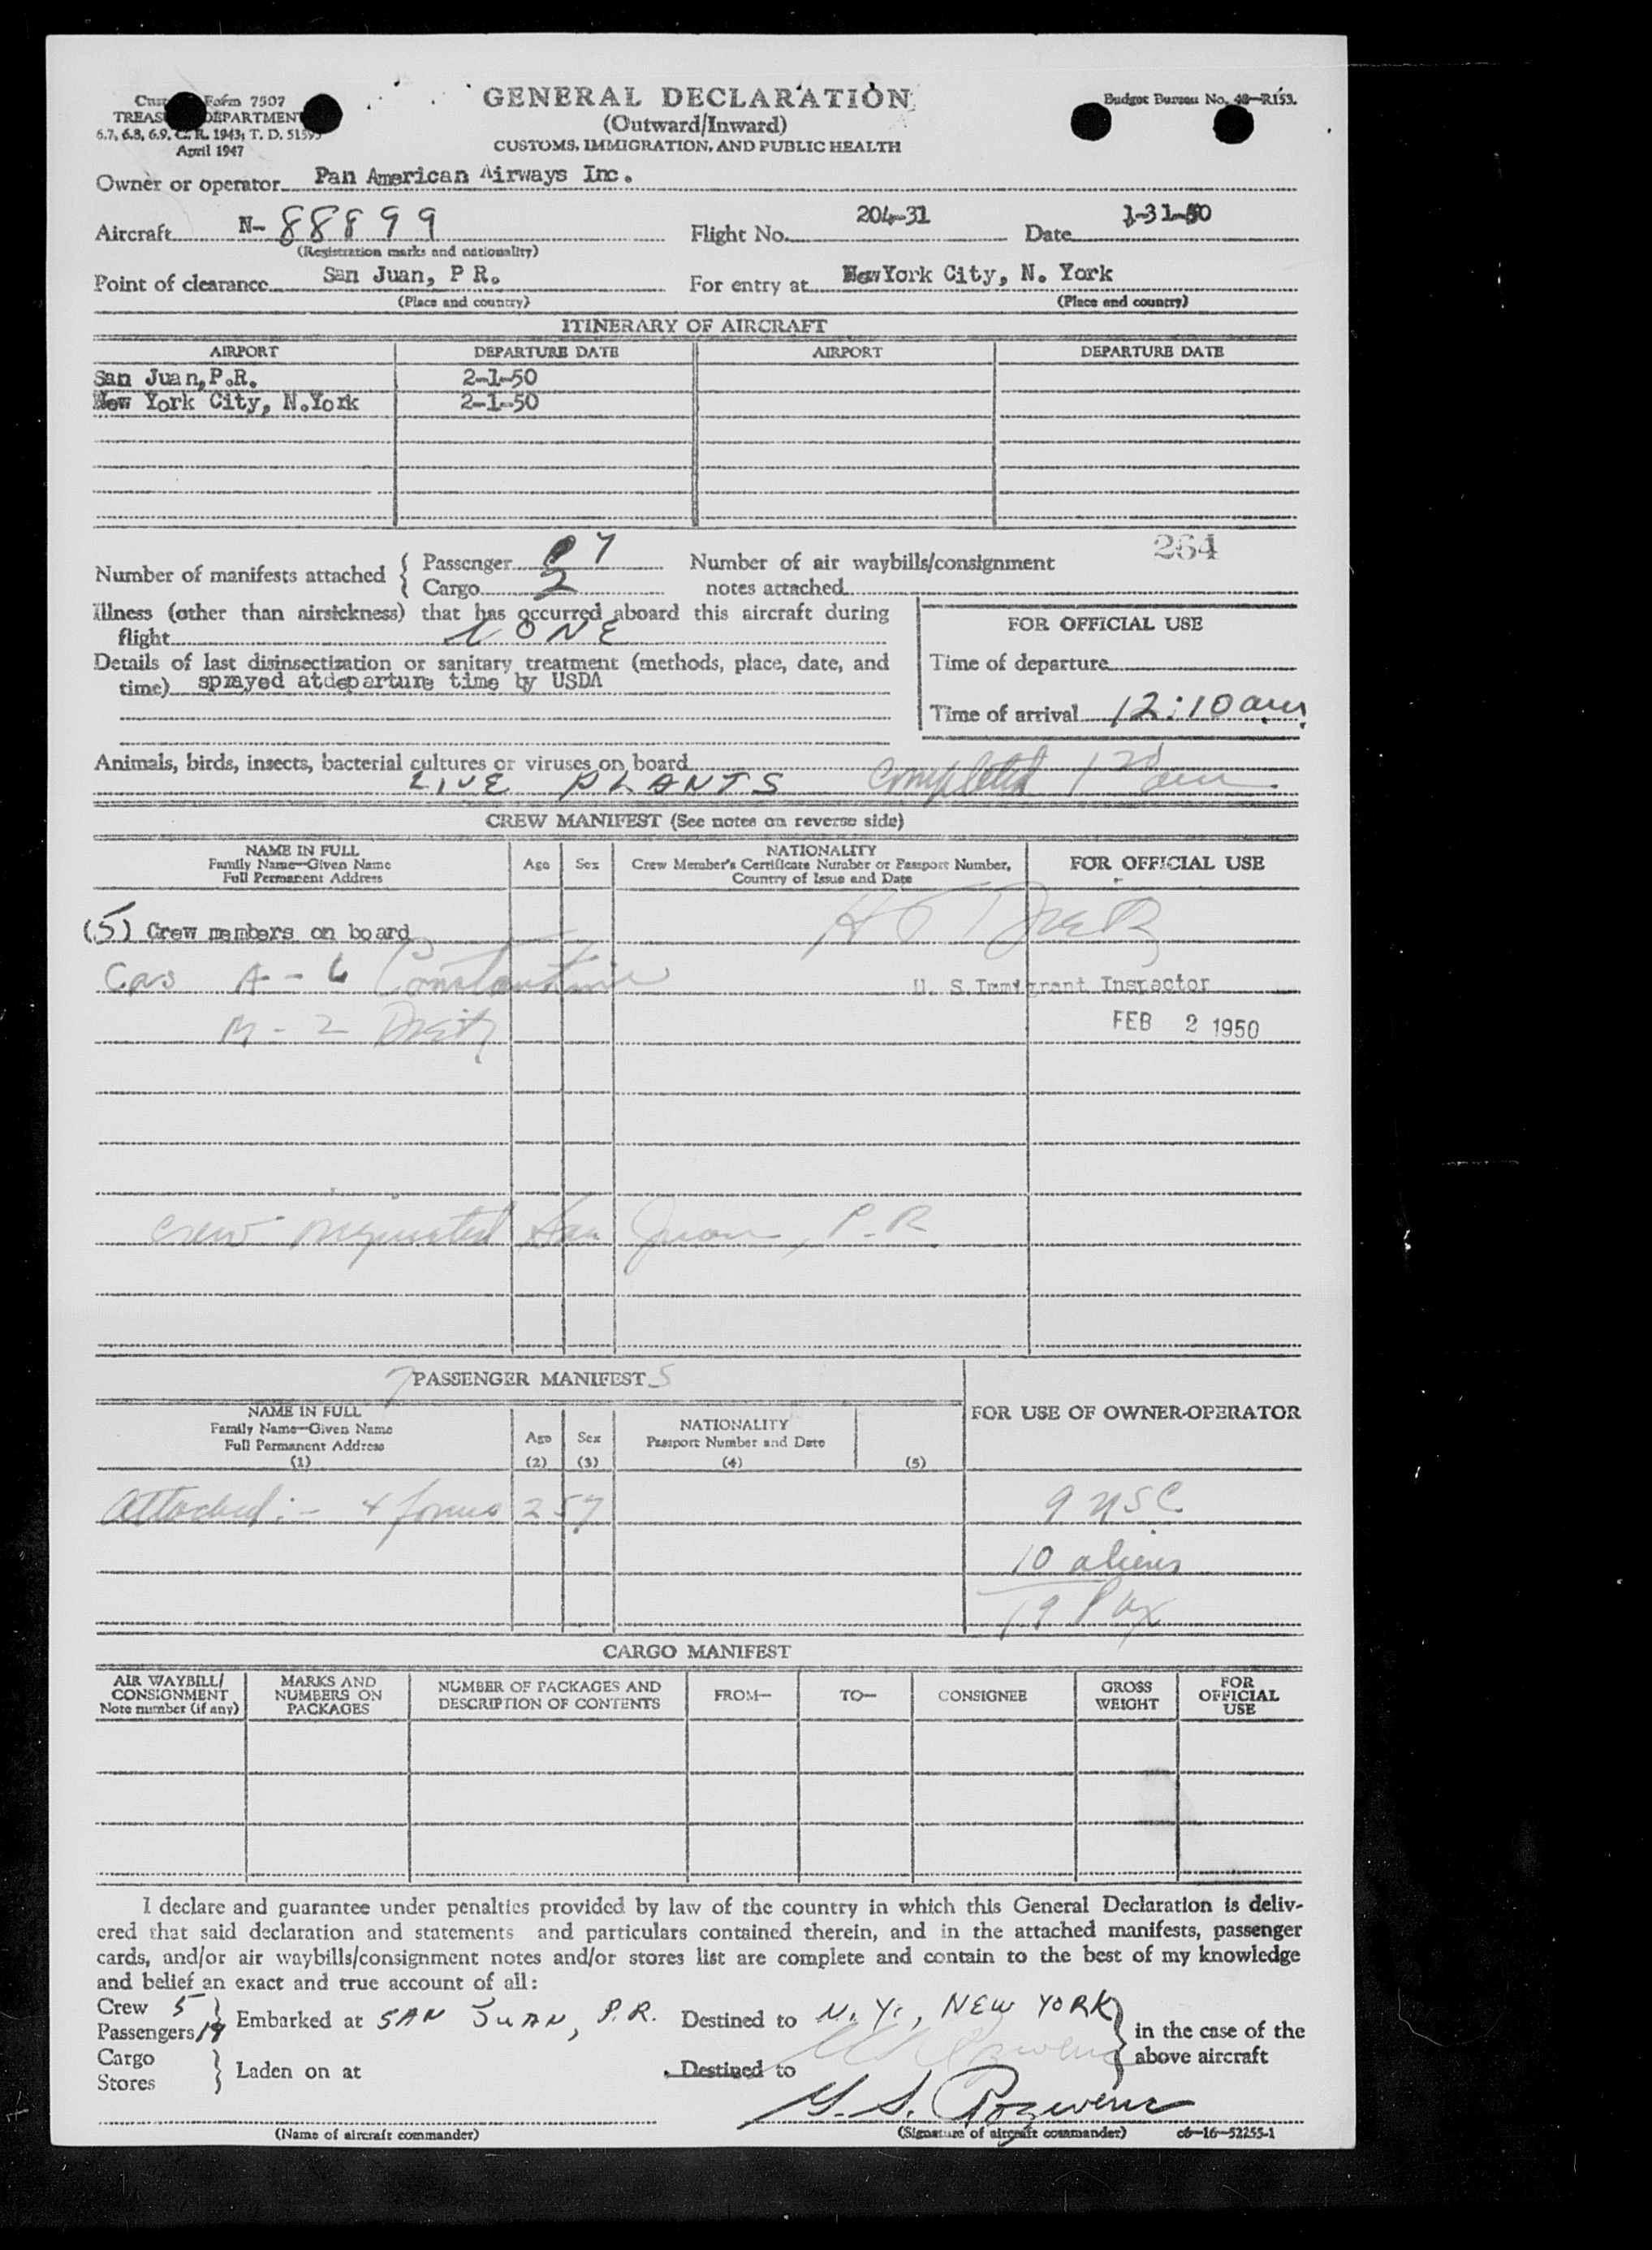 Form 7507
TREAS DEPARTMENT
6.7, 6.8, 6.9, C. R. 1943; T. D. 51595
April 1947
GENERAL DECLARATION
(Outward/Inward)
CUSTOMS, IMMIGRATION, AND PUBLIC HEALTH
Budget Bureau No. 48—R153.
Owner or operator Pan American Airways Inc.
Aircraft N- 88899 Flight No. 204-31 Date 1-31-50
(Registration marks and nationality)
Point of clearance San Juan, P R. For entry at New York City, N. York
(Place and country) (Place and country)
ITINERARY OF AIRCRAFT
AIRPORT DEPARTURE DATE AIRPORT DEPARTURE DATE
San Juan, P.R. 2-1-50
New York City, N.York 2-1-50
264
Number of manifests attached { Passenger 7 Number of air waybills/consignment
Cargo 2 notes attached
Illness (other than airsickness) that has occurred aboard this aircraft during
flight NONE
FOR OFFICIAL USE
Details of last disinsectization or sanitary treatment (methods, place, date, and
time) sprayed atdeparture time by USDA
Time of departure
Time of arrival 12:10 am
Animals, birds, insects, bacterial cultures or viruses on board
LIVE PLANTS Completed 1 20 am
CREW MANIFEST (See notes on reverse side)
NAME IN FULL
Family Name—Given Name
Full Permanent Address
Age Sex
NATIONALITY
Crew Member's Certificate Number or Passport Number,
Country of Issue and Date
FOR OFFICIAL USE
(5) Crew members on board
A - 6 Constantine
U. S. Immigrant Inspector
M - 2
FEB 2 1950
Crew inspected San Juan, P.R
7 PASSENGER MANIFEST S
NAME IN FULL
Family Name—Given Name
Full Permanent Address
(1)
Age
(2)
Sex
(3)
NATIONALITY
Passport Number and Date
(4)
(5)
FOR USE OF OWNER-OPERATOR
Attached :- 4 forms 257
9 USC
10 aliens
19 Pax
CARGO MANIFEST
AIR WAYBILL/
CONSIGNMENT
Note number (if any)
MARKS AND
NUMBERS ON
PACKAGES
NUMBER OF PACKAGES AND
DESCRIPTION OF CONTENTS
FROM— TO— CONSIGNEE
GROSS
WEIGHT
FOR
OFFICIAL
USE
I declare and guarantee under penalties provided by law of the country in which this General Declaration is deliv-
ered that said declaration and statements and particulars contained therein, and in the attached manifests, passenger
cards, and/or air waybills/consignment notes and/or stores list are complete and contain to the best of my knowledge
and belief an exact and true account of all:
Crew 5
Passengers 19 } Embarked at SAN JUAN, P.R. Destined to N.Y., NEW YORK } in the case of the
above aircraft
Cargo
Stores } Laden on at Destined to
(Name of aircraft commander) (Signature of aircraft commander) c6—16—52255-1